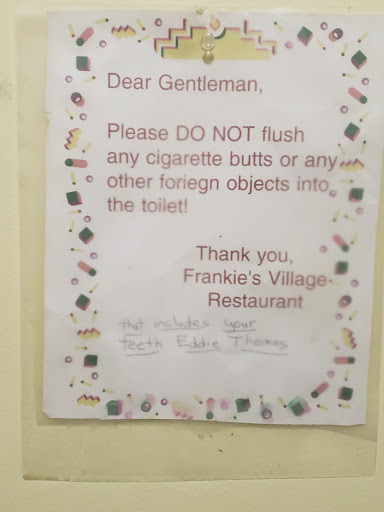 Dear Gentleman,
Please DO NOT flush
any cigarette butts or any
other foriegn objects into
the toilet!
Thank you,
Frankie's Village
Restaurant
that includes your
Teeth Eddie Thomas